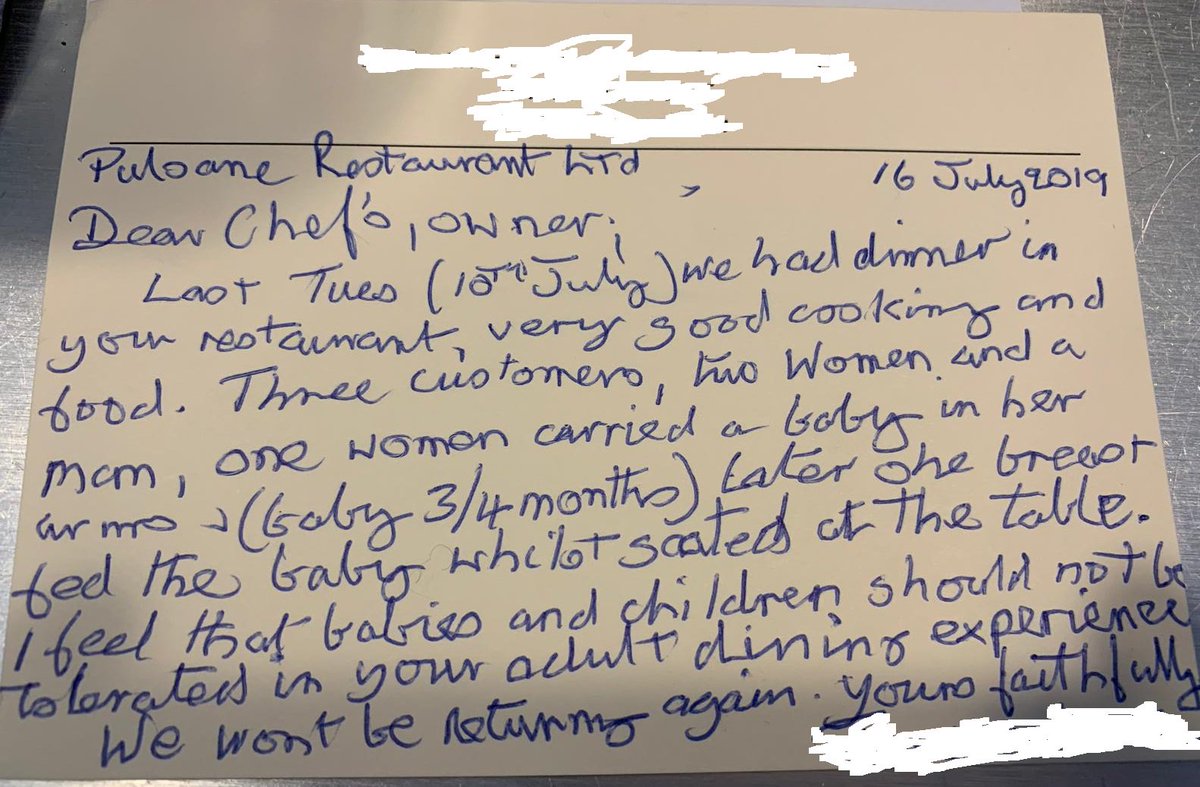 Puloane Restaurant Ltd
16 July 2019
Dear Chef's, owner,
Last Tues (10th July) we had dinner in
your restaurant, very good cooking and
food. Three customers, two women and a
man, one women carried a baby in her
arms (baby 3/4 months) Later she breast
fed the baby whilst seated at the table.
I feel that babies and children should not be
tolerated in your adult dining experience
We wont be returning again. Yours faithfully